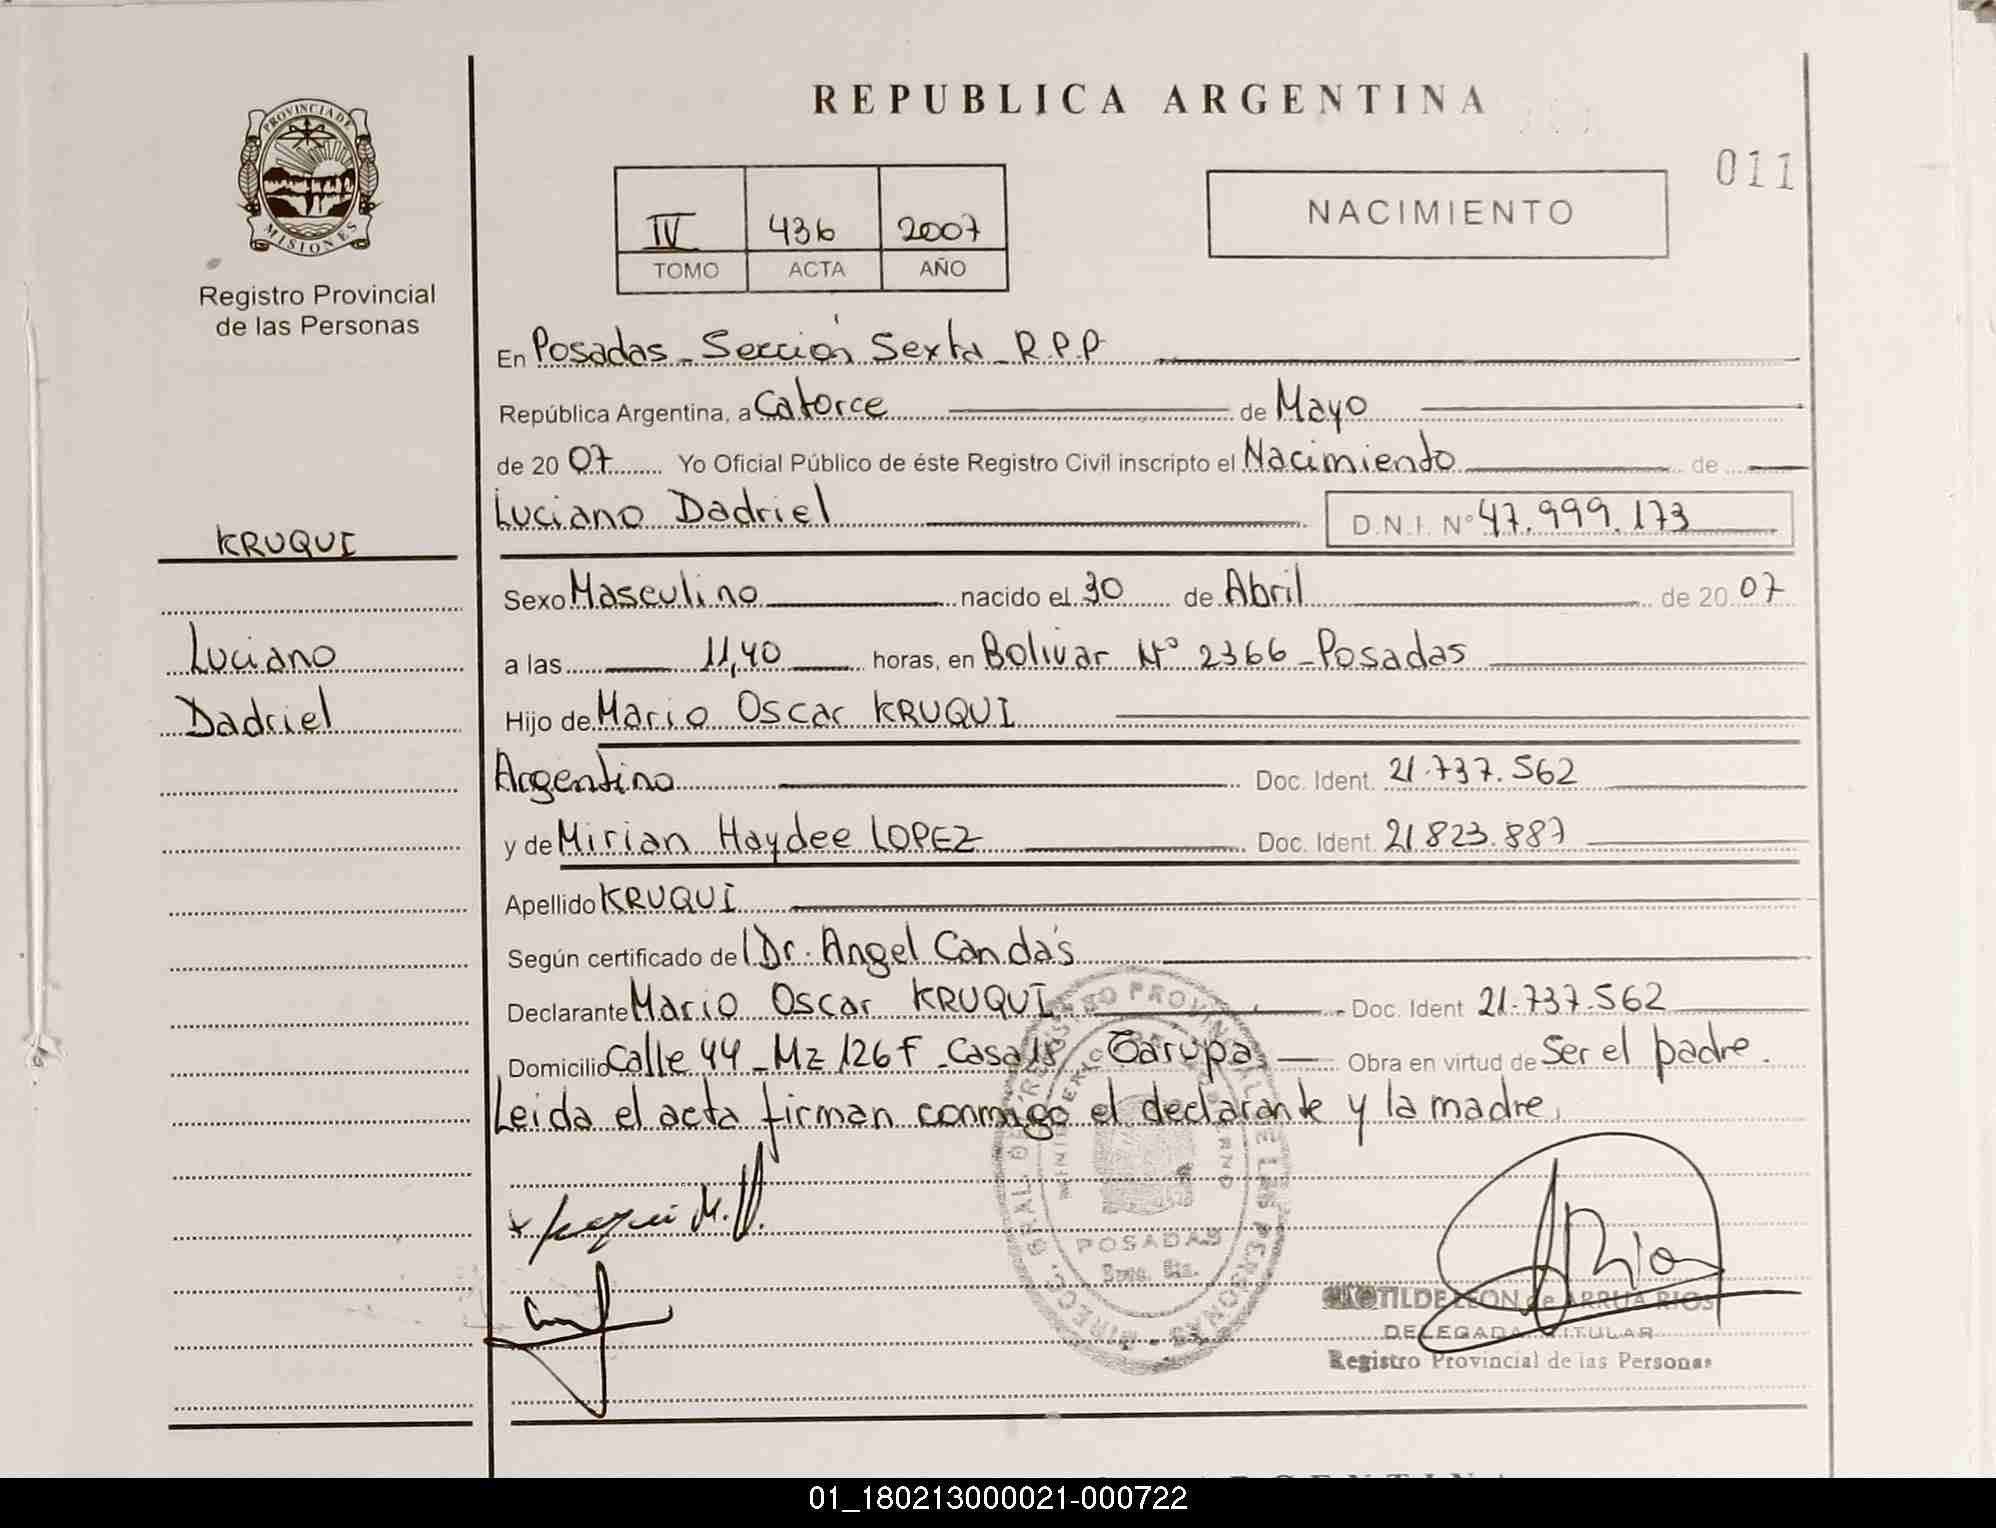 REPUBLICA ARGENTINA
011
PROVINCIA DE
MISIONES
Registro Provincial
de las Personas
IV 436 2007
TOMO ACTA AÑO
NACIMIENTO
En Posadas - Sección Sexta - R.P.P
República Argentina, a Catorce de Mayo
de 20 07 Yo Oficial Público de éste Registro Civil inscripto el Nacimiento de
Luciano Dadriel D.N.I. Nº 47.999.173
KRUQUI
Sexo Masculino nacido el 30 de Abril de 20 07
Luciano
a las 11,40 horas, en Bolivar Nº 2366 - Posadas
Dadriel
Hijo de Mario Oscar KRUQUI
Argentino Doc. Ident. 21.737.562
y de Mirian Haydee LOPEZ Doc. Ident. 21.823.887
Apellido KRUQUI
Según certificado de Dr. Angel Candás
Declarante Mario Oscar KRUQUI Doc. Ident 21.737.562
Domicilio Calle 44 - Mz 126 F - Casa 15 Garupa Obra en virtud de Ser el padre.
Leida el acta firman conmigo el declarante y la madre.
POSADAS
LEON de ARRUA RIOS
DELEGADA TITULAR
Registro Provincial de las Personas
01_180213000021-000722